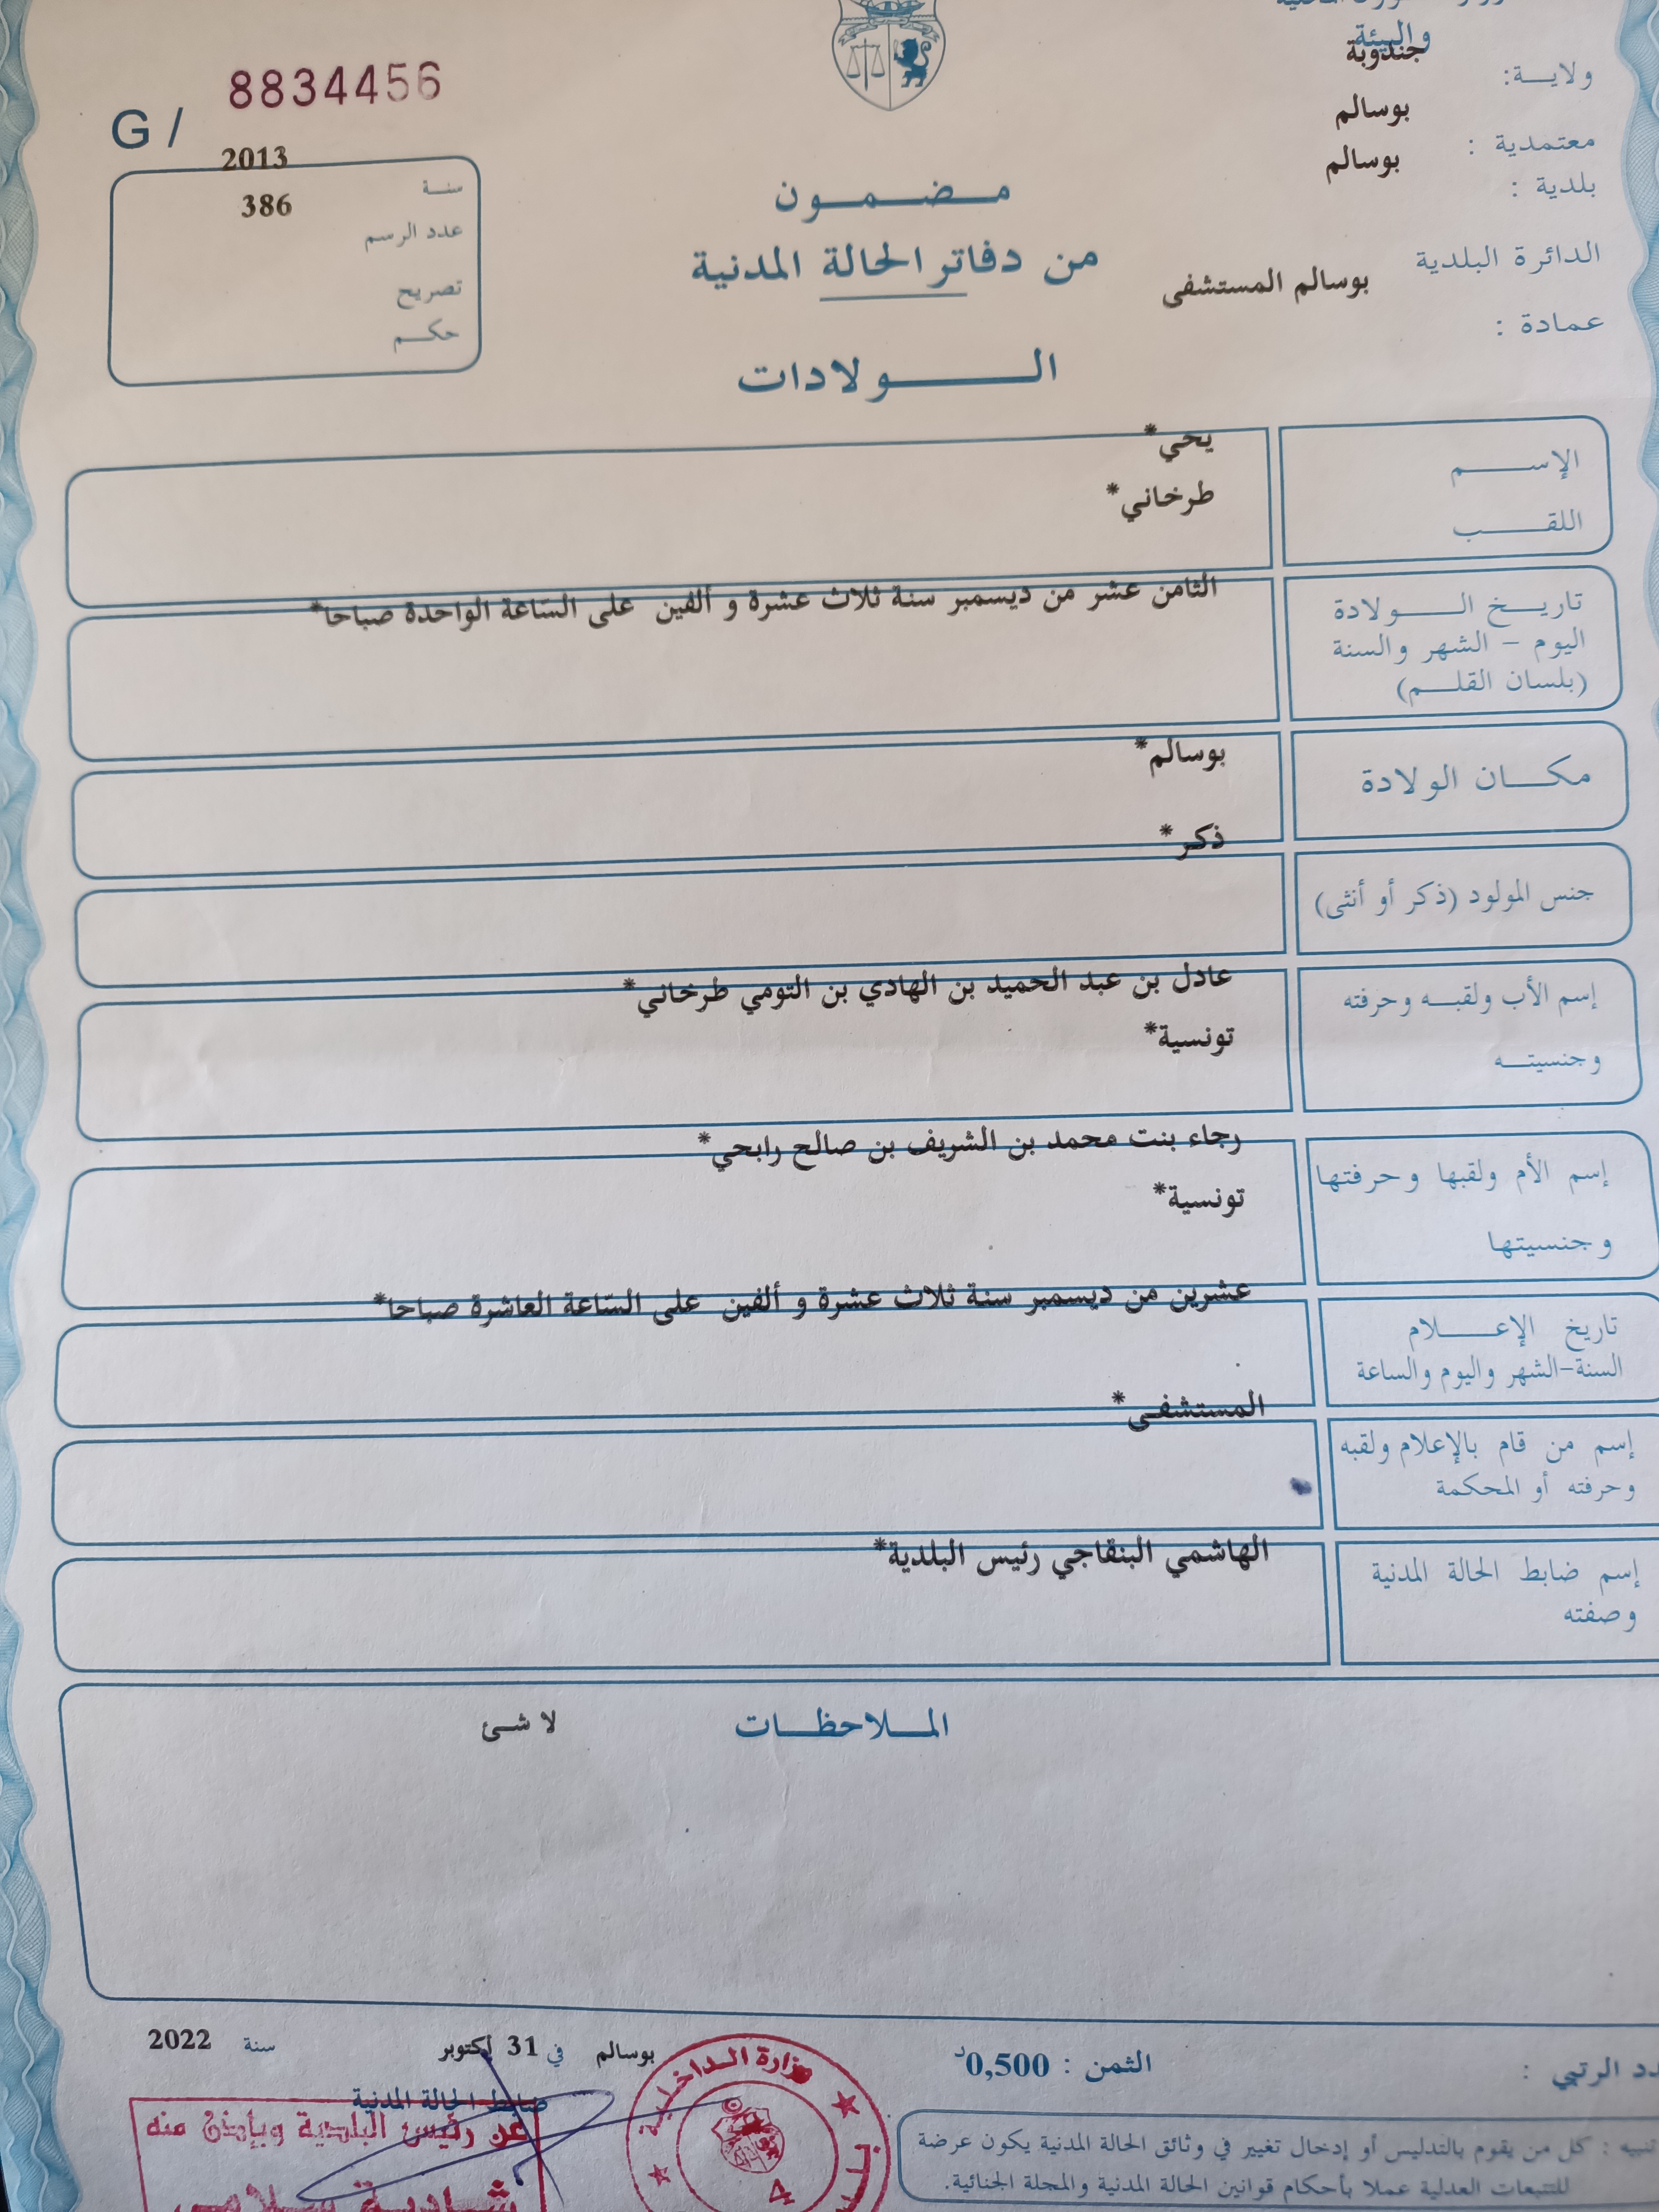 والبيئة
ولايـــة: جندوبة
معتمدية : بوسالم
بلدية : بوسالم
الدائرة البلدية
بوسالم المستشفى
عمادة :
G / 8834456
2013
سنة
386
عدد الرسم
تصريح
حكم
مضمون
من دفاتر الحالة المدنية
الولادات
الإسم
يحي*
اللقب
طرخاني*
تاريخ الولادة
اليوم - الشهر والسنة
(بلسان القلم)
الثامن عشر من ديسمبر سنة ثلاث عشرة و ألفين على السّاعة الواحدة صباحا*
مكان الولادة
بوسالم*
جنس المولود (ذكر أو أنثى)
ذكر*
إسم الأب ولقبه وحرفته
وجنسيته
عادل بن عبد الحميد بن الهادي بن التومي طرخاني*
تونسية*
إسم الأم ولقبها وحرفتها
وجنسيتها
رجاء بنت محمد بن الشريف بن صالح رابحي*
تونسية*
تاريخ الإعلام
السنة-الشهر واليوم والساعة
عشرين من ديسمبر سنة ثلاث عشرة و ألفين على السّاعة العاشرة صباحا*
إسم من قام بالإعلام ولقبه
وحرفته أو المحكمة
المستشفى*
إسم ضابط الحالة المدنية
وصفته
الهاشمي البنقاجي رئيس البلدية*
الملاحظات
لا شئ
بوسالم في 31 أكتوبر سنة 2022
ضابط الحالة المدنية
عن رئيس البلدية وبإذن منه
شادية سلامي
وزارة الداخلية
4
الثمن : 0,500د
الرتبي :
تنبيه : كل من يقوم بالتدليس أو إدخال تغيير في وثائق الحالة المدنية يكون عرضة
للتتبعات العدلية عملا بأحكام قوانين الحالة المدنية والمجلة الجنائية.